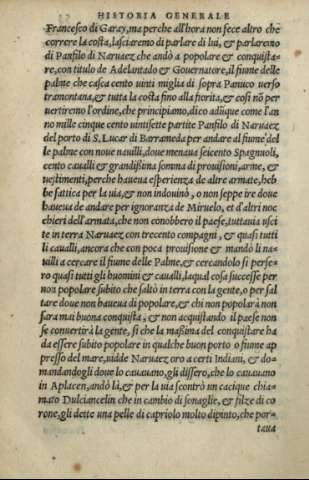 HISTORIA GENERALE
Francesco di Garay, ma perche all'hora non fece altro che
correre la costa, lasciaremo di parlare di lui, & parlaremo
di Panfilo di Naruaez che andò a popolare & conquista-
re, con titulo de Adelantado & Gouernatore, il fiume delle
palme che casca cento uinti miglia di sopra Panuco uerso
tramontana, & tutta la costa fino alla fiorita, & cosi nõ per
uertiremo l'ordine, che principiamo, dico adũque come l'an
no mille cinque cento uintisette partite Panfilo di Naruaez
del porto di S. Lucar di Barrameda per andare al fiume del
le palme con noue nauilli, doue menaua seicento Spagnuoli,
cento caualli & grandissima somma di prouisioni, arme, &
uestimenti, perche haueua esperienza de altre armate, heb
be fattica per la uia, & non indouinò, o non seppe ire doue
haueua de andare per ignoranza de Miruelo, et d'altri noc
chieri dell'armata, che non conobbero il paese, tuttauia usci
te in terra Naruaez con trecento compagni, & quasi tutti
li caualli, ancora che con poca prouisione & mandò li na-
uilli a cercare il fiume delle Palme, & cercandolo si perse-
ro quasi tutti gli huomini & caualli, laqual cosa successe per
non popolare subito che saltò in terra con la gente, o per sal
tare doue non haueua di popolare, & chi non popolarà non
sara mai buona conquista, & non acquistando il paese non
se conuertirà la gente, si che la massima del conquistare ha
da essere subito popolare in qualche buon porto o fiume ap
presso del mare, uidde Naruaez oro a certi Indiani, & do-
mandandogli doue lo cauauano, gli dissero, che lo cauauano
in Aplacen, andò li, & per la uia scontrò un cacique chia-
mato Dulciancelin che in cambio di sonaglie, & filze di co
rone, gli dette una pelle di capriolo molto dipinto, che por-
taua